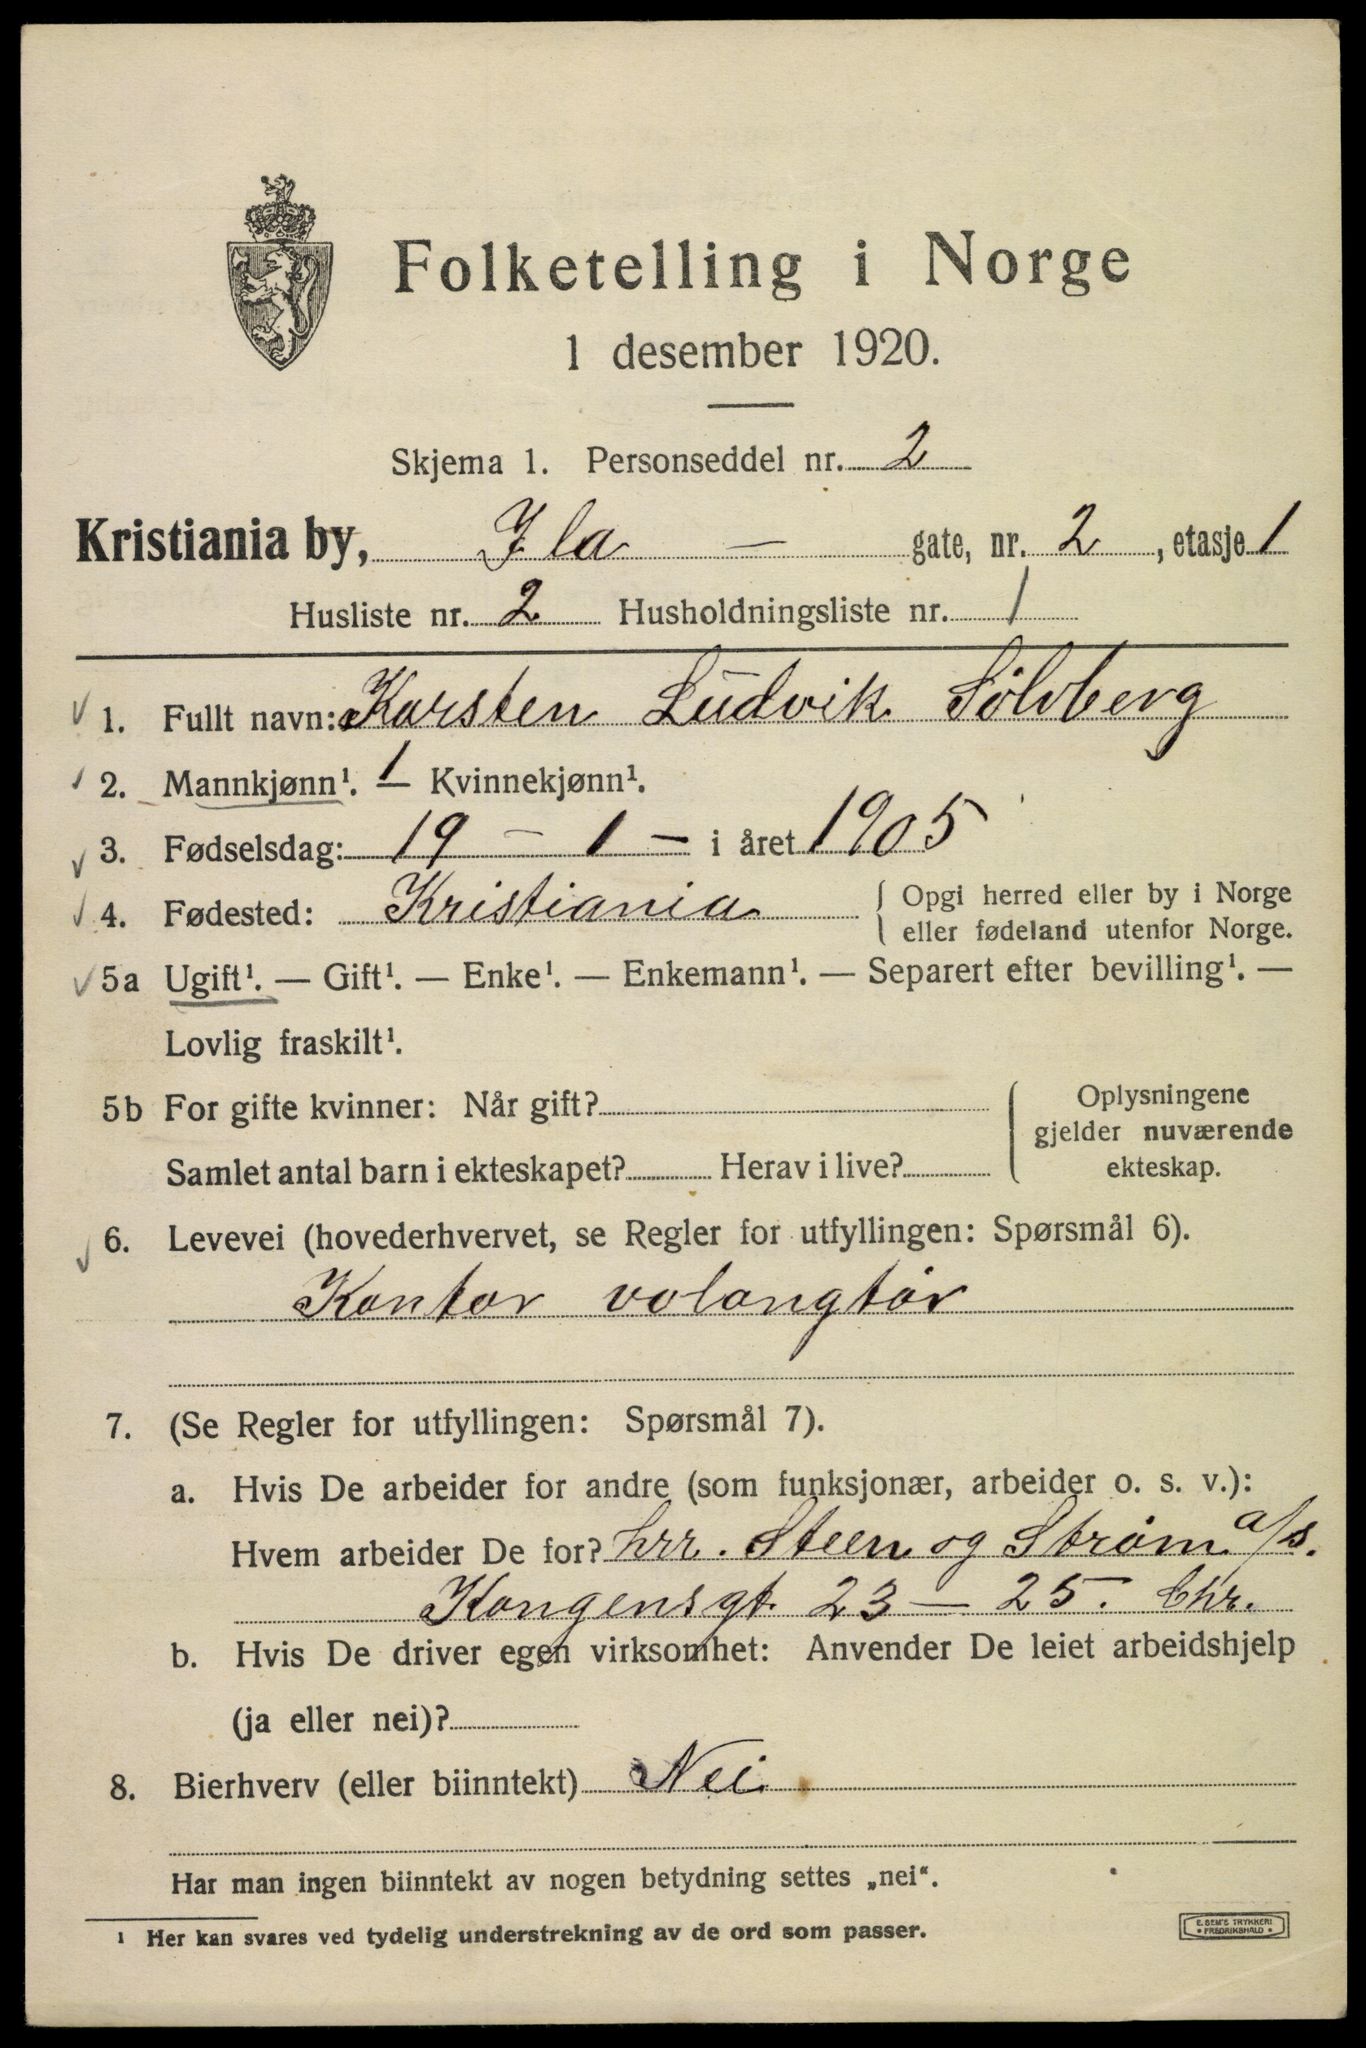 Folketelling i Norge
1 desember 1920.
Skjema 1. Personseddel nr. 2
Kristiania by, Ila — gate, nr. 2, etasje 1
Husliste nr. 2 Husholdningsliste nr. 1
1. Fullt navn: Karsten Ludvik Sölvberg
2. Mannkjønn¹. 1 — Kvinnekjønn¹.
3. Fødselsdag: 19 – 1 – i året 1905
4. Fødested: Kristiania { Opgi herred eller by i Norge
eller fødeland utenfor Norge.
5a Ugift¹. — Gift¹. — Enke¹. — Enkemann¹. — Separert efter bevilling¹. —
Lovlig fraskilt¹.
5b For gifte kvinner: Når gift?
Samlet antal barn i ekteskapet? Herav i live?
Oplysningene
gjelder nuværende
ekteskap.
6. Levevei (hovederhvervet, se Regler for utfyllingen: Spørsmål 6).
Kontor volangtør
7. (Se Regler for utfyllingen: Spørsmål 7).
a. Hvis De arbeider for andre (som funksjonær, arbeider o. s. v.):
Hvem arbeider De for? hrr. Steen og Strøm a/s.
Kongensgt. 23 – 25. Chr.
b. Hvis De driver egen virksomhet: Anvender De leiet arbeidshjelp
(ja eller nei)?
8. Bierhverv (eller biinntekt) Nei
Har man ingen biinntekt av nogen betydning settes „nei“.
¹ Her kan svares ved tydelig understrekning av de ord som passer.
E. SEM'S TRYKKERI
• FREDRIKSHALD •